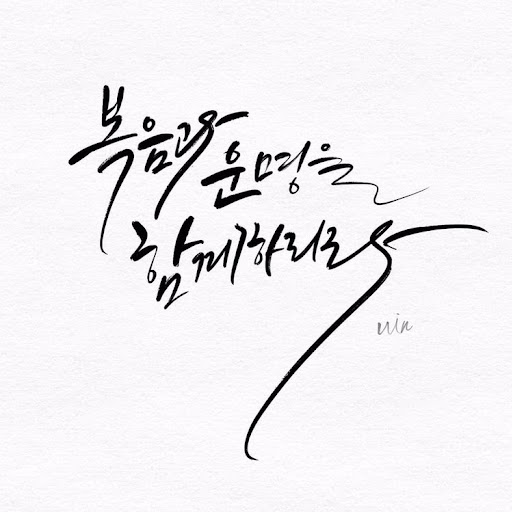 복음과 운명을
함께하리라
win